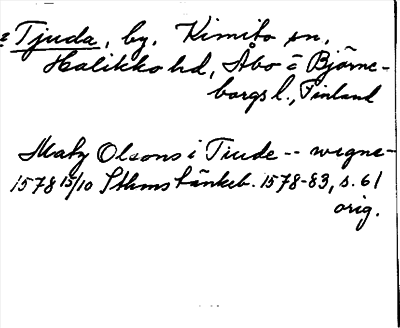 Tjuda, by, Kimito sn,
Halikko hd, Åbo o Björne-
borgs l., Finland
Maty Olsons i Tiude -- wegne-
1578 15/10 Sthms tänkeb. 1578-83, s. 61
orig.